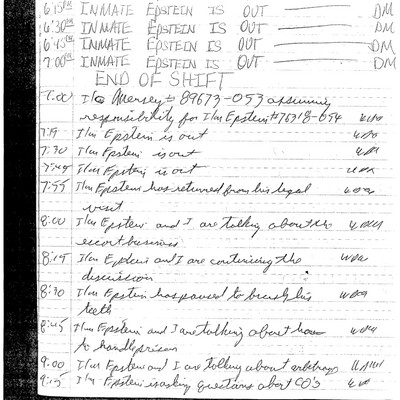 6:15PM INMATE EPSTEIN IS OUT DM
6:30PM INMATE EPSTEIN IS OUT DM
6:45PM INMATE EPSTEIN IS OUT DM
7:00PM INMATE EPSTEIN IS OUT DM
END OF SHIFT
7:00 I/C Mersey # 89673-053 assuming
responsibility for I/m Epstein #76318-054
7:15 I/m Epstein is out
7:30 I/m Epstein is out
7:45 I/m Epstein is out
7:55 I/m Epstein has returned from his legal
visit
8:00 I/m Epstein and I are talking about the
escort business
8:15 I/m Epstein and I are continuing the
discussion
8:30 I/m Epstein has paused to brush his
teeth
8:45 I/m Epstein and I are talking about how
to handle prison
9:00 I/m Epstein and I are talking about arbitrage
9:15 I/m Epstein is asking questions about CO's